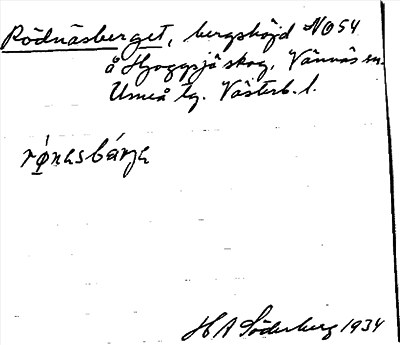 Rödnäsberget, bergshöjd NO54
å Hjoggsjö skog, Vännäs sn.
Umeå tg. Västerb. l.
rǿnɛsbárjɛ
H A Söderberg 1934